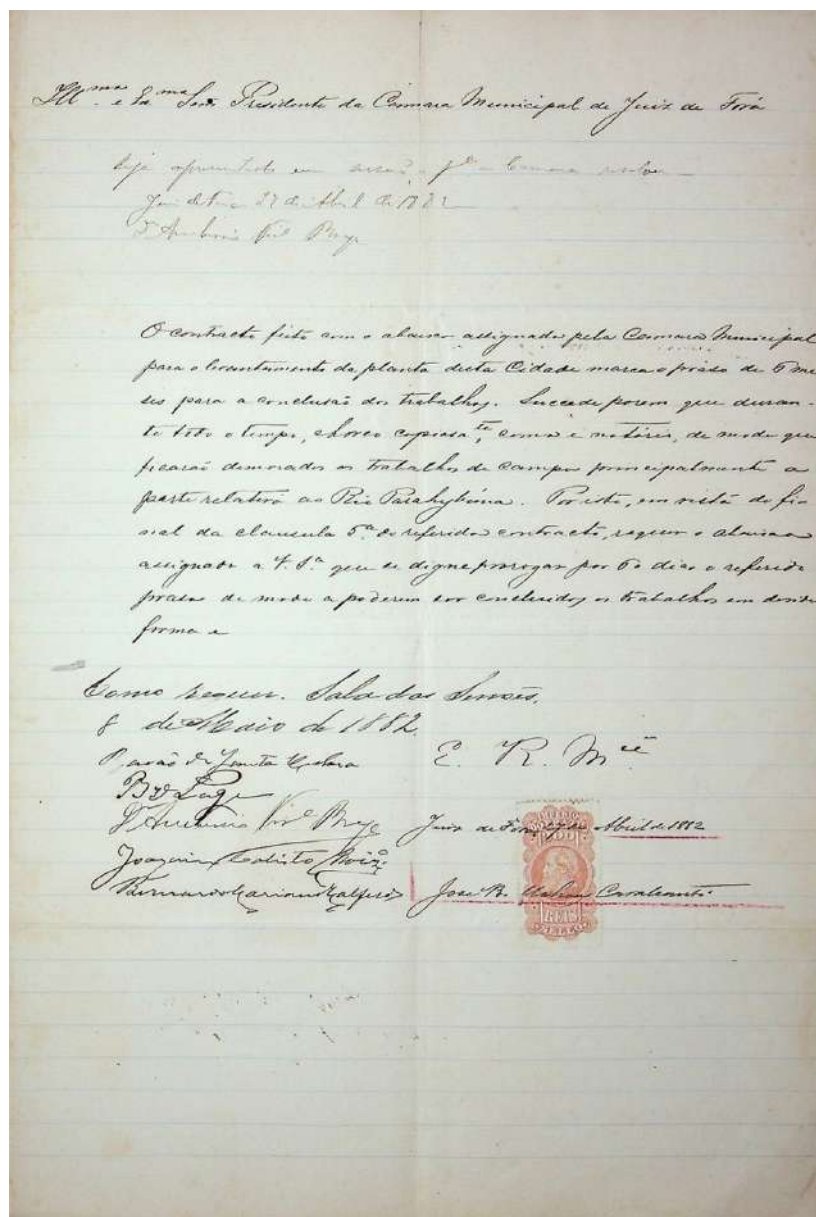 Ill.ma e Ex.ma Snr. Presidente da Camara Municipal de Juiz de Fóra
Seja apresentado em sessão a Camara resolver
Juiz de Fora 27 de Abril de 1882
O contracto feito com o abaixo assignado pela Camara Municipal
para o levantamento da planta desta Cidade marca o praso de 6 me
ses para a conclusão dos trabalhos. Succede porem que duran-
te todo o tempo, choveo copiosa.te, como é notorio, de modo que
ficarão demorados os trabalhos de campo principalmente a
parte relativa ao Rio Parahybuna. Por isto, em vista do fi
nal da clausula 5.a do referido contracto, requer o abaixo
assignado a V. S.a que se digne prorogar por 60 dias o referido
praso de modo a poderem ser concluidos os trabalhos em devida
forma e
Como requer. Sala das Sessões,
8 de Maio de 1882.
E. R. M.ce
Barão de Santa Helena
B. Lage
Juiz de Fora 27 de Abril de 1882
Joaquim Calisto
Bernardo Mariano Halfeld
José B. Cavalcanti
REIS